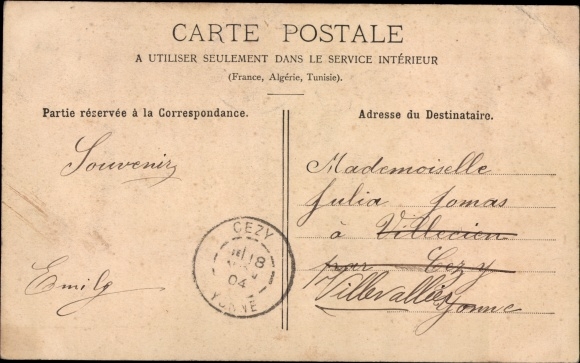 CARTE POSTALE
A UTILISER SEULEMENT DANS LE SERVICE INTÉRIEUR
(France, Algérie, Tunisie).
Partie rézervée à la Correspondance.
Souvenir
Emily
Adresse du Destinataire.
Mademoiselle
Julia Jomas
à Villecien
par Cezy
Villevallier
Yonne
CEZY
18
04
YONNE